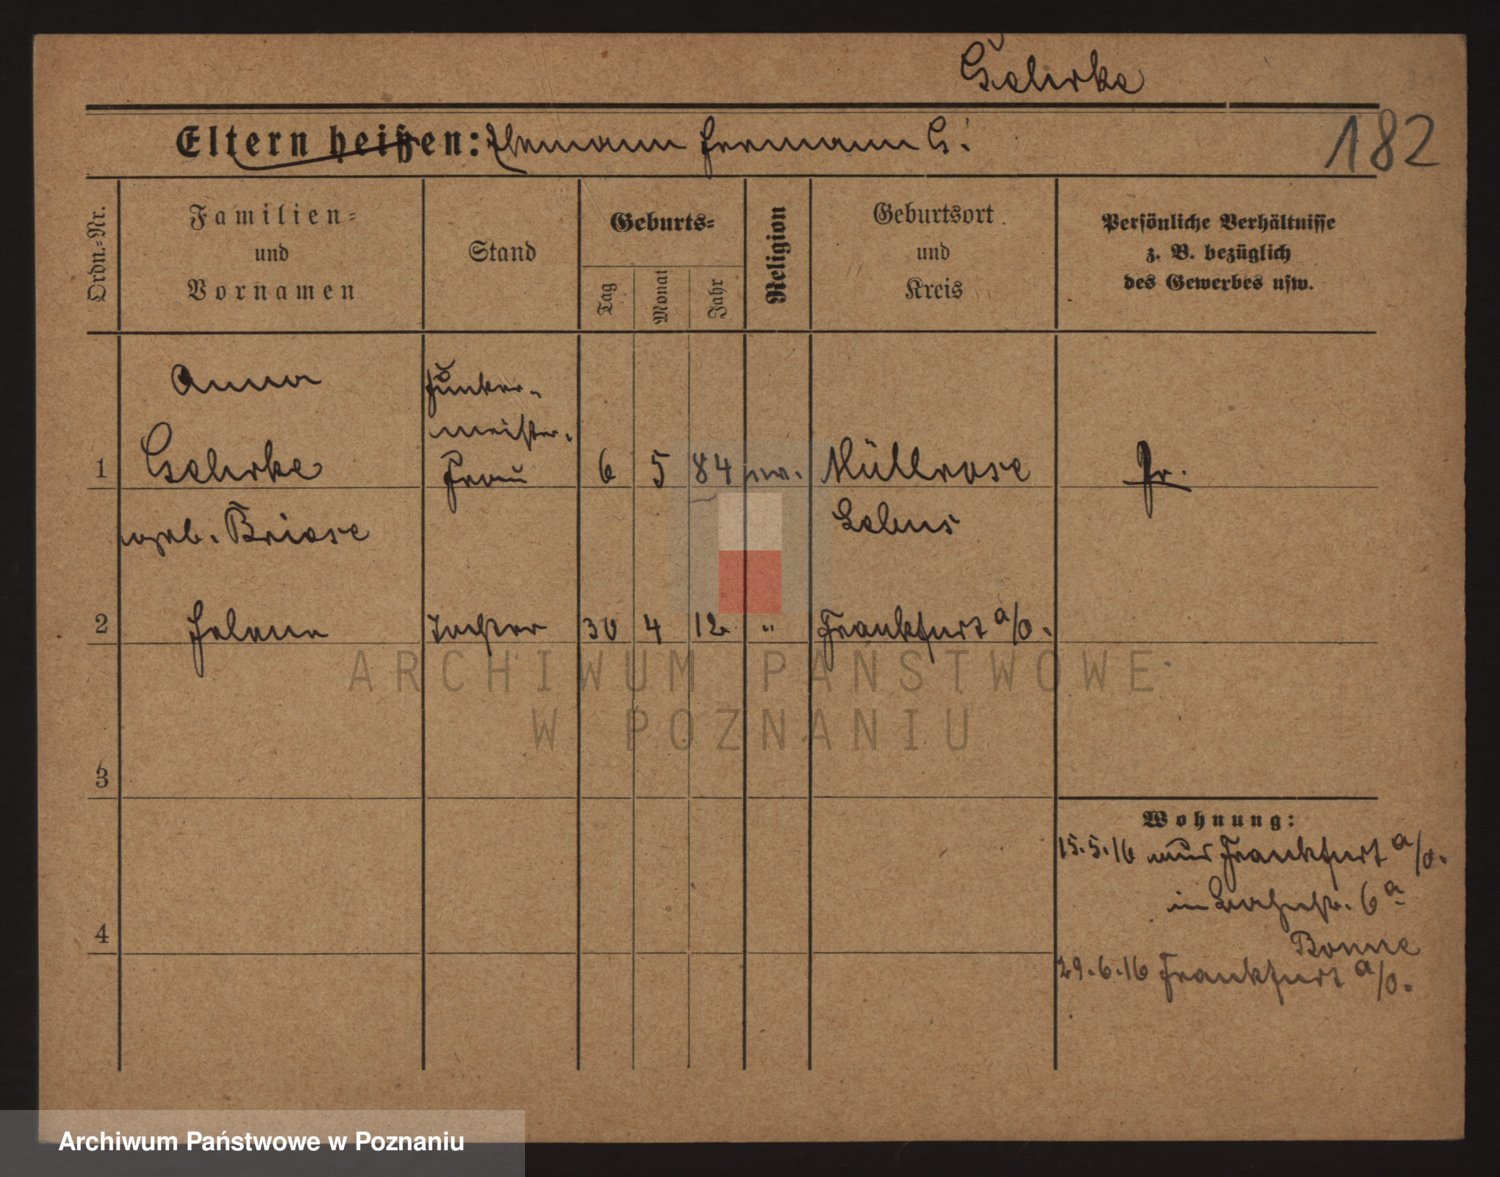 Gehrke
Eltern heißen: Ehemann Hermann G.
182
Ordn.-Nr.
Familien-
und
Vornamen
Stand
Geburts-
Tag
Monat
Jahr
Religion
Geburtsort
und
Kreis
Persönliche Verhältnisse
z. B. bezüglich
des Gewerbes usw.
Anna
Funker-
meister-
1 Gehrke Frau 6 5 84 ev. Müllrose Pr.
geb. Briese Lebus
2 Helene Tochter 30 4 12 " Frankfurt a/O.
3
Wohnung:
15.5.16 aus Frankfurt a/O.
in 6a
4
Bonne
29.6.16 Frankfurt a/O.
ARCHIWUM PAŃSTWOWE
W POZNANIU
Archiwum Państwowe w Poznaniu